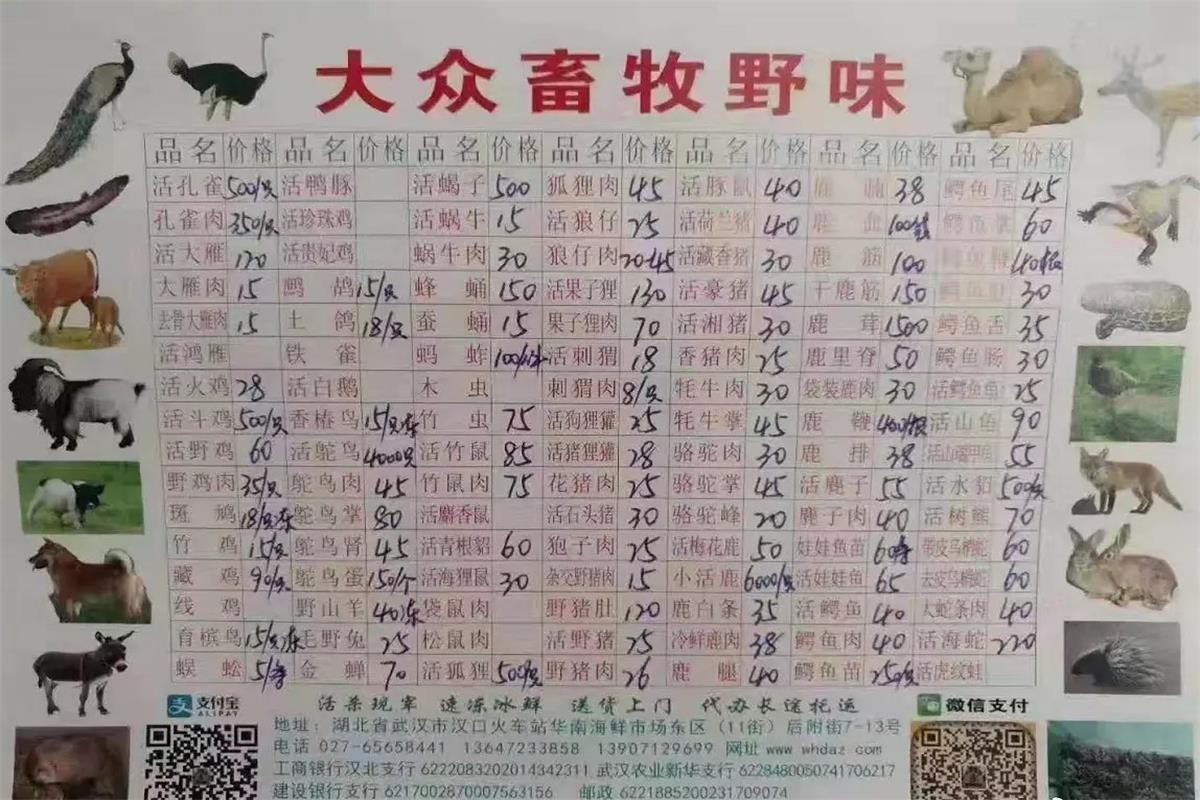 大众畜牧野味
品名 价格 品名 价格 品名 价格 品名 价格 品名 价格 品名 价格 品名 价格
活孔雀 500/只 活鸭豚 活蝎子 500 狐狸肉 45 活豚鼠 40 鹿 38 鳄鱼尾 45
孔雀肉 350/只 活珍珠鸡 活蜗牛 15 活狼仔 25 活荷兰猪 40 鹿血 鳄鱼掌 60
活大雁 120 活贵妃鸡 蜗牛肉 30 狼仔肉 20-45 活藏香猪 30 鹿筋 100 鳄鱼鞭
大雁肉 15 鹧鸪 15/只 蜂蛹 150 活果子狸 130 活豪猪 45 干鹿筋 150 鳄鱼 30
去骨大雁肉 15 土鸽 18/只 蚕蛹 15 果子狸肉 70 活湘猪 30 鹿茸 1500 鳄鱼舌 35
活鸿雁 铁雀 蚂蚱 活刺猬 18 香猪肉 25 鹿里脊 50 鳄鱼肠 30
活火鸡 28 活白鹅 木虫 刺猬肉 8/只 牦牛肉 30 袋装鹿肉 30 活鳄鱼龟 25
活斗鸡 500/只 香椿鸟 15/只冻 竹虫 75 活狗狸獾 25 牦牛掌 45 鹿鞭 400/根 活山龟 90
活野鸡 60 活鸵鸟 4000只 活竹鼠 85 活猪狸獾 28 骆驼肉 30 鹿排 38 55
野鸡肉 35/只 鸵鸟肉 45 竹鼠肉 75 花猪肉 25 骆驼掌 45 活麂子 55 活水貂 500/只
斑鸠 18/只冻 鸵鸟掌 80 活麝香鼠 活石头猪 30 骆驼峰 20 麂子肉 40 活树熊 70
竹鸡 15/只 鸵鸟肾 45 活青根貂 60 狍子肉 25 活梅花鹿 50 娃娃鱼苗 带皮乌梢蛇 60
藏鸡 90/只 鸵鸟蛋 150/个 活海狸鼠 30 杂交野猪肉 15 小活鹿 6000/只 活娃娃鱼 65 去皮乌梢蛇 60
线鸡 野山羊 40冻 袋鼠肉 野猪肚 120 鹿白条 35 活鳄鱼 40 大蛇条肉 40
育槟鸟 15/只冻 毛野兔 25 松鼠肉 活野猪 25 冷鲜鹿肉 38 鳄鱼肉 40 活海蛇 220
蜈蚣 金蝉 70 活狐狸 500/只 野猪肉 26 鹿腿 40 鳄鱼苗 250/只 活虎纹蛙
支付宝 活杀现宰 速冻冰鲜 送货上门 代办长途托运 微信支付
ALIPAY
地址：湖北省武汉市汉口火车站华南海鲜市场东区（11街）后附街7-13号
电话 027-65658441 13647233858 13907129699 网址 www whdaz com
工商银行汉北支行 6222083202014342311 武汉农业新华支行 6228480050741706217
建设银行支行 6217002870007563156 邮政 6221885200231709074